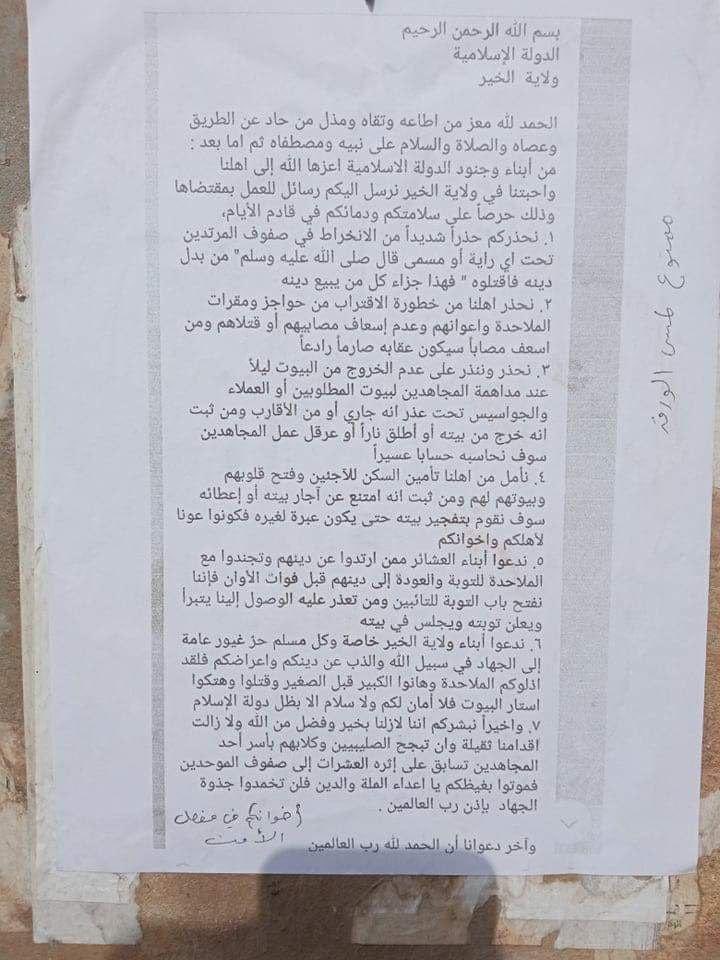 بسم الله الرحمن الرحيم
الدولة الإسلامية
ولاية الخير
الحمد لله معز من اطاعه وتقاه ومذل من حاد عن الطريق
وعصاه والصلاة والسلام على نبيه ومصطفاه ثم اما بعد :
من أبناء وجنود الدولة الاسلامية اعزها الله إلى اهلنا
واحبتنا في ولاية الخير نرسل اليكم رسائل للعمل بمقتضاها
وذلك حرصاً على سلامتكم ودمائكم في قادم الأيام،
١. نحذركم حذراً شديداً من الانخراط في صفوف المرتدين
تحت اي راية أو مسمى قال صلى الله عليه وسلم" من بدل
دينه فاقتلوه " فهذا جزاء كل من يبيع دينه
٢. نحذر اهلنا من خطورة الاقتراب من حواجز ومقرات
الملاحدة واعوانهم وعدم إسعاف مصابيهم أو قتلاهم ومن
اسعف مصاباً سيكون عقابه صارماً رادعاً
٣. نحذر وننذر على عدم الخروج من البيوت ليلاً
عند مداهمة المجاهدين لبيوت المطلوبين أو العملاء
والجواسيس تحت عذر انه جاري أو من الأقارب ومن ثبت
انه خرج من بيته أو أطلق ناراً أو عرقل عمل المجاهدين
سوف نحاسبه حسابا عسيراً
٤. نأمل من اهلنا تأمين السكن للآجئين وفتح قلوبهم
وبيوتهم لهم ومن ثبت انه امتنع عن آجار بيته أو إعطائه
سوف نقوم بتفجير بيته حتى يكون عبرة لغيره فكونوا عونا
لأهلكم واخوانكم
٥. ندعوا أبناء العشائر ممن ارتدوا عن دينهم وتجندوا مع
الملاحدة للتوبة والعودة إلى دينهم قبل فوات الأوان فإننا
نفتح باب التوبة للتائبين ومن تعذر عليه الوصول إلينا يتبرأ
ويعلن توبته ويجلس في بيته
٦. ندعوا أبناء ولاية الخير خاصة وكل مسلم حرٍ غيور عامة
إلى الجهاد في سبيل الله والذب عن دينكم واعراضكم فلقد
اذلوكم الملاحدة وهانوا الكبير قبل الصغير وقتلوا وهتكوا
استار البيوت فلا أمان لكم ولا سلام الا بظل دولة الإسلام
٧. واخيراً نبشركم اننا لازلنا بخير وفضل من الله ولا زالت
اقدامنا ثقيلة وان تبجح الصليبيين وكلابهم بأسر أحد
المجاهدين تسابق على إثره العشرات إلى صفوف الموحدين
فموتوا بغيظكم يا اعداء الملة والدين فلن تخمدوا جذوة
الجهاد بإذن رب العالمين .
وآخر دعوانا أن الحمد لله رب العالمين
أخوانكم في مفصل
الأمن
ممنوع لمس الورقة